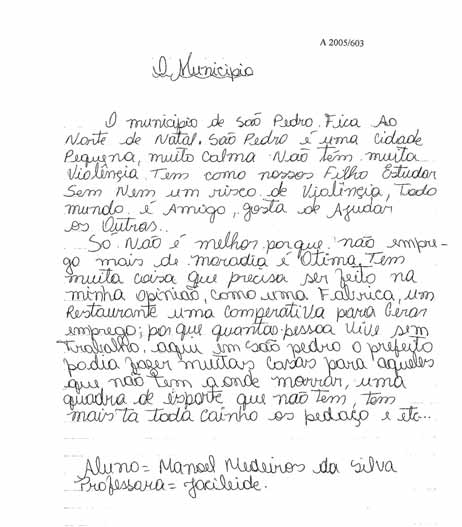 A 2005/603
O Município
O município de São Pedro. Fica Ao
Norte de Natal. São Pedro é uma cidade
Pequena, muito Calma Não tem muita
Violênçia. Tem como nossos Filho Estudar
Sem Nem um risco de Violinçia, Todo
mundo é Amigo, gosta de Azudar
os Outras..
Só Não é melhor porque não empre-
go mais de moradia é Otima, Tem
muita coisa que precisa ser feito na
minha opinião, como uma Fabrica, um
Restaurante uma comperativa para Gerar
emprego; por que quantas pessoa Vive sem
Trabalho, aqui im são pedro o prefeito
podia fazer muitas casas para aqueles
que não tem a onde morrar, uma
quadra de esporte que não tem, tem
mais ta toda cainho os pedaço e etc...
Aluno= Manoel Medeiros da Silva
Professara= Jacileide.